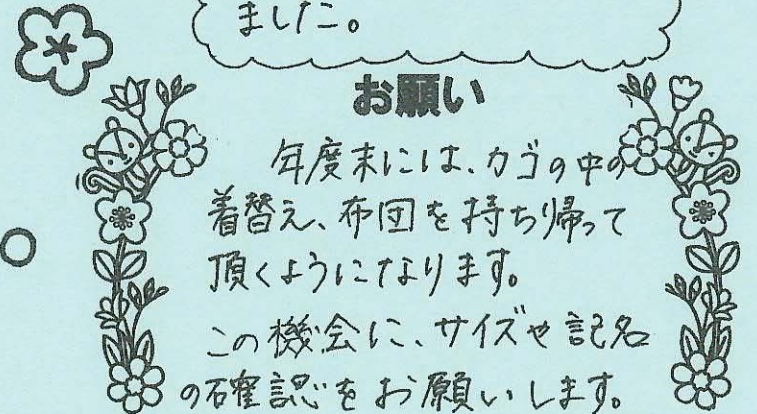 ました。
お願い
年度末には、カゴの中の
着替え、布団を持ち帰って
頂くようになります。
この機会に、サイズや記名
の確認をお願いします。